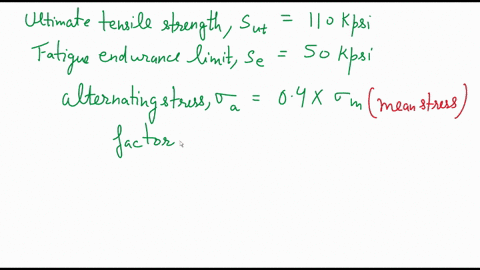 Ultimate tensile strength, Sut = 110 Kpsi
Fatigue endurance limit, Se = 50 Kpsi
alternating stress, σa = 0.4 × σm (mean stress)
factor